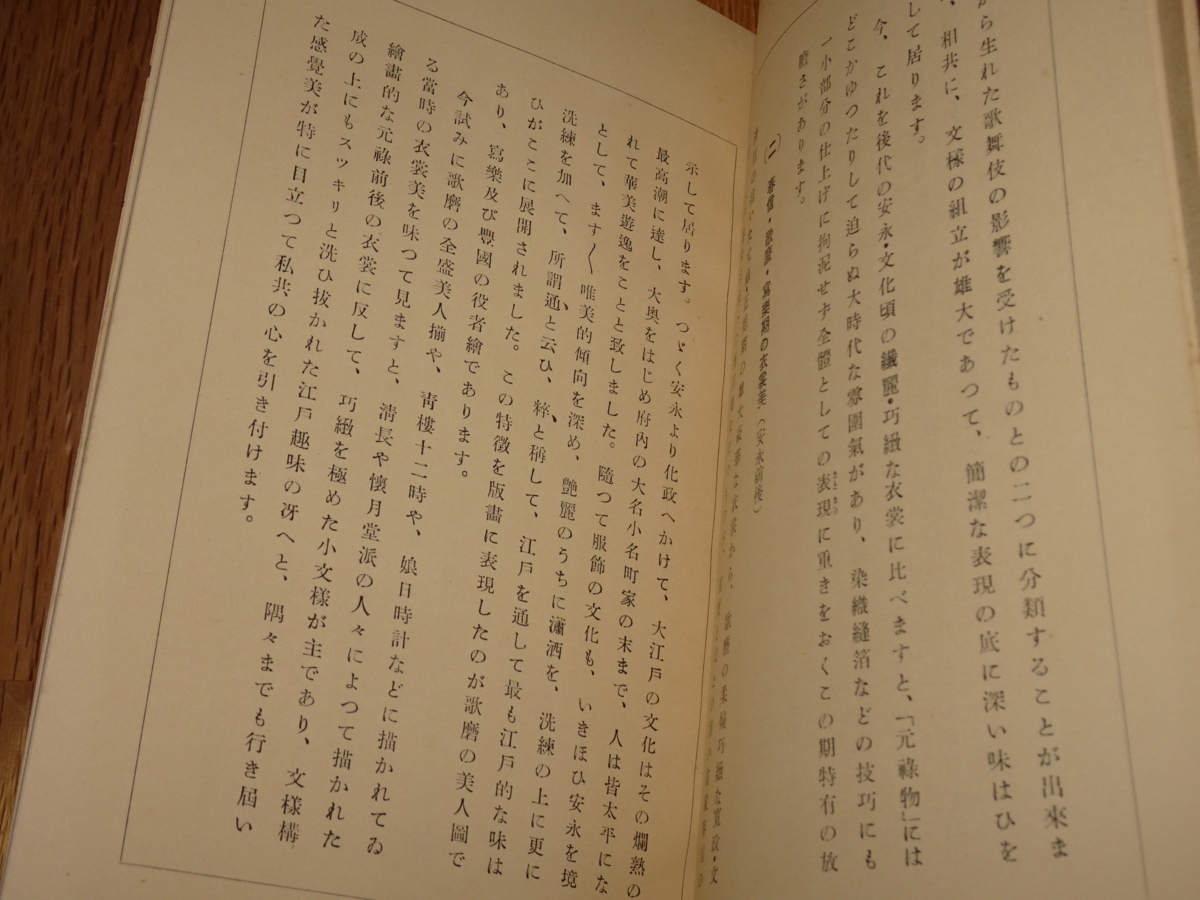 から生れた歌舞伎の影響を受けたものとの二つに分類することが出來ま
、相共に、文様の組立が雄大であつて、簡潔な表現の底に深い味はひを
して居ります。
今、これを後代の安永・文化頃の纎麗・巧緻な衣裳に比べますと、「元祿物」には
どこかゆつたりして迫らぬ大時代な雰圍氣があり、染織縫箔などの技巧にも
一小部分の仕上げに拘泥せず全體としての表現に重きをおくこの期特有の放
膽さがあります。
(二) 春信・歌麿・寫樂期の衣裳美(安永前後)
示して居ります。つゞく安永より化政へかけて、大江戸の文化はその爛熟の
最高潮に達し、大奥をはじめ府内の大名小名町家の末まで、人は皆太平にな
れて華美遊逸をことと致しました。隨つて服飾の文化も、いきほひ安永を境
として、ます〱唯美的傾向を深め、艷麗のうちに瀟洒を、洗練の上に更に
洗練を加へて、所謂通と云ひ、粹と稱して、江戸を通して最も江戸的な味は
ひがここに展開されました。この特徴を版畫に表現したのが歌麿の美人圖で
あり、寫樂及び豐國の役者繪であります。
今試みに歌磨の全盛美人揃や、靑樓十二時や、娘日時計などに描かれてゐ
る當時の衣裳美を味つて見ますと、淸長や懷月堂派の人々によつて描かれた
繪畫的な元祿前後の衣裳に反して、巧緻を極めた小文様が主であり、文様構
成の上にもスツキリと洗ひ拔かれた江戸趣味の冴へと、隅々までも行き屆い
た感覺美が特に目立つて私共の心を引き付けます。